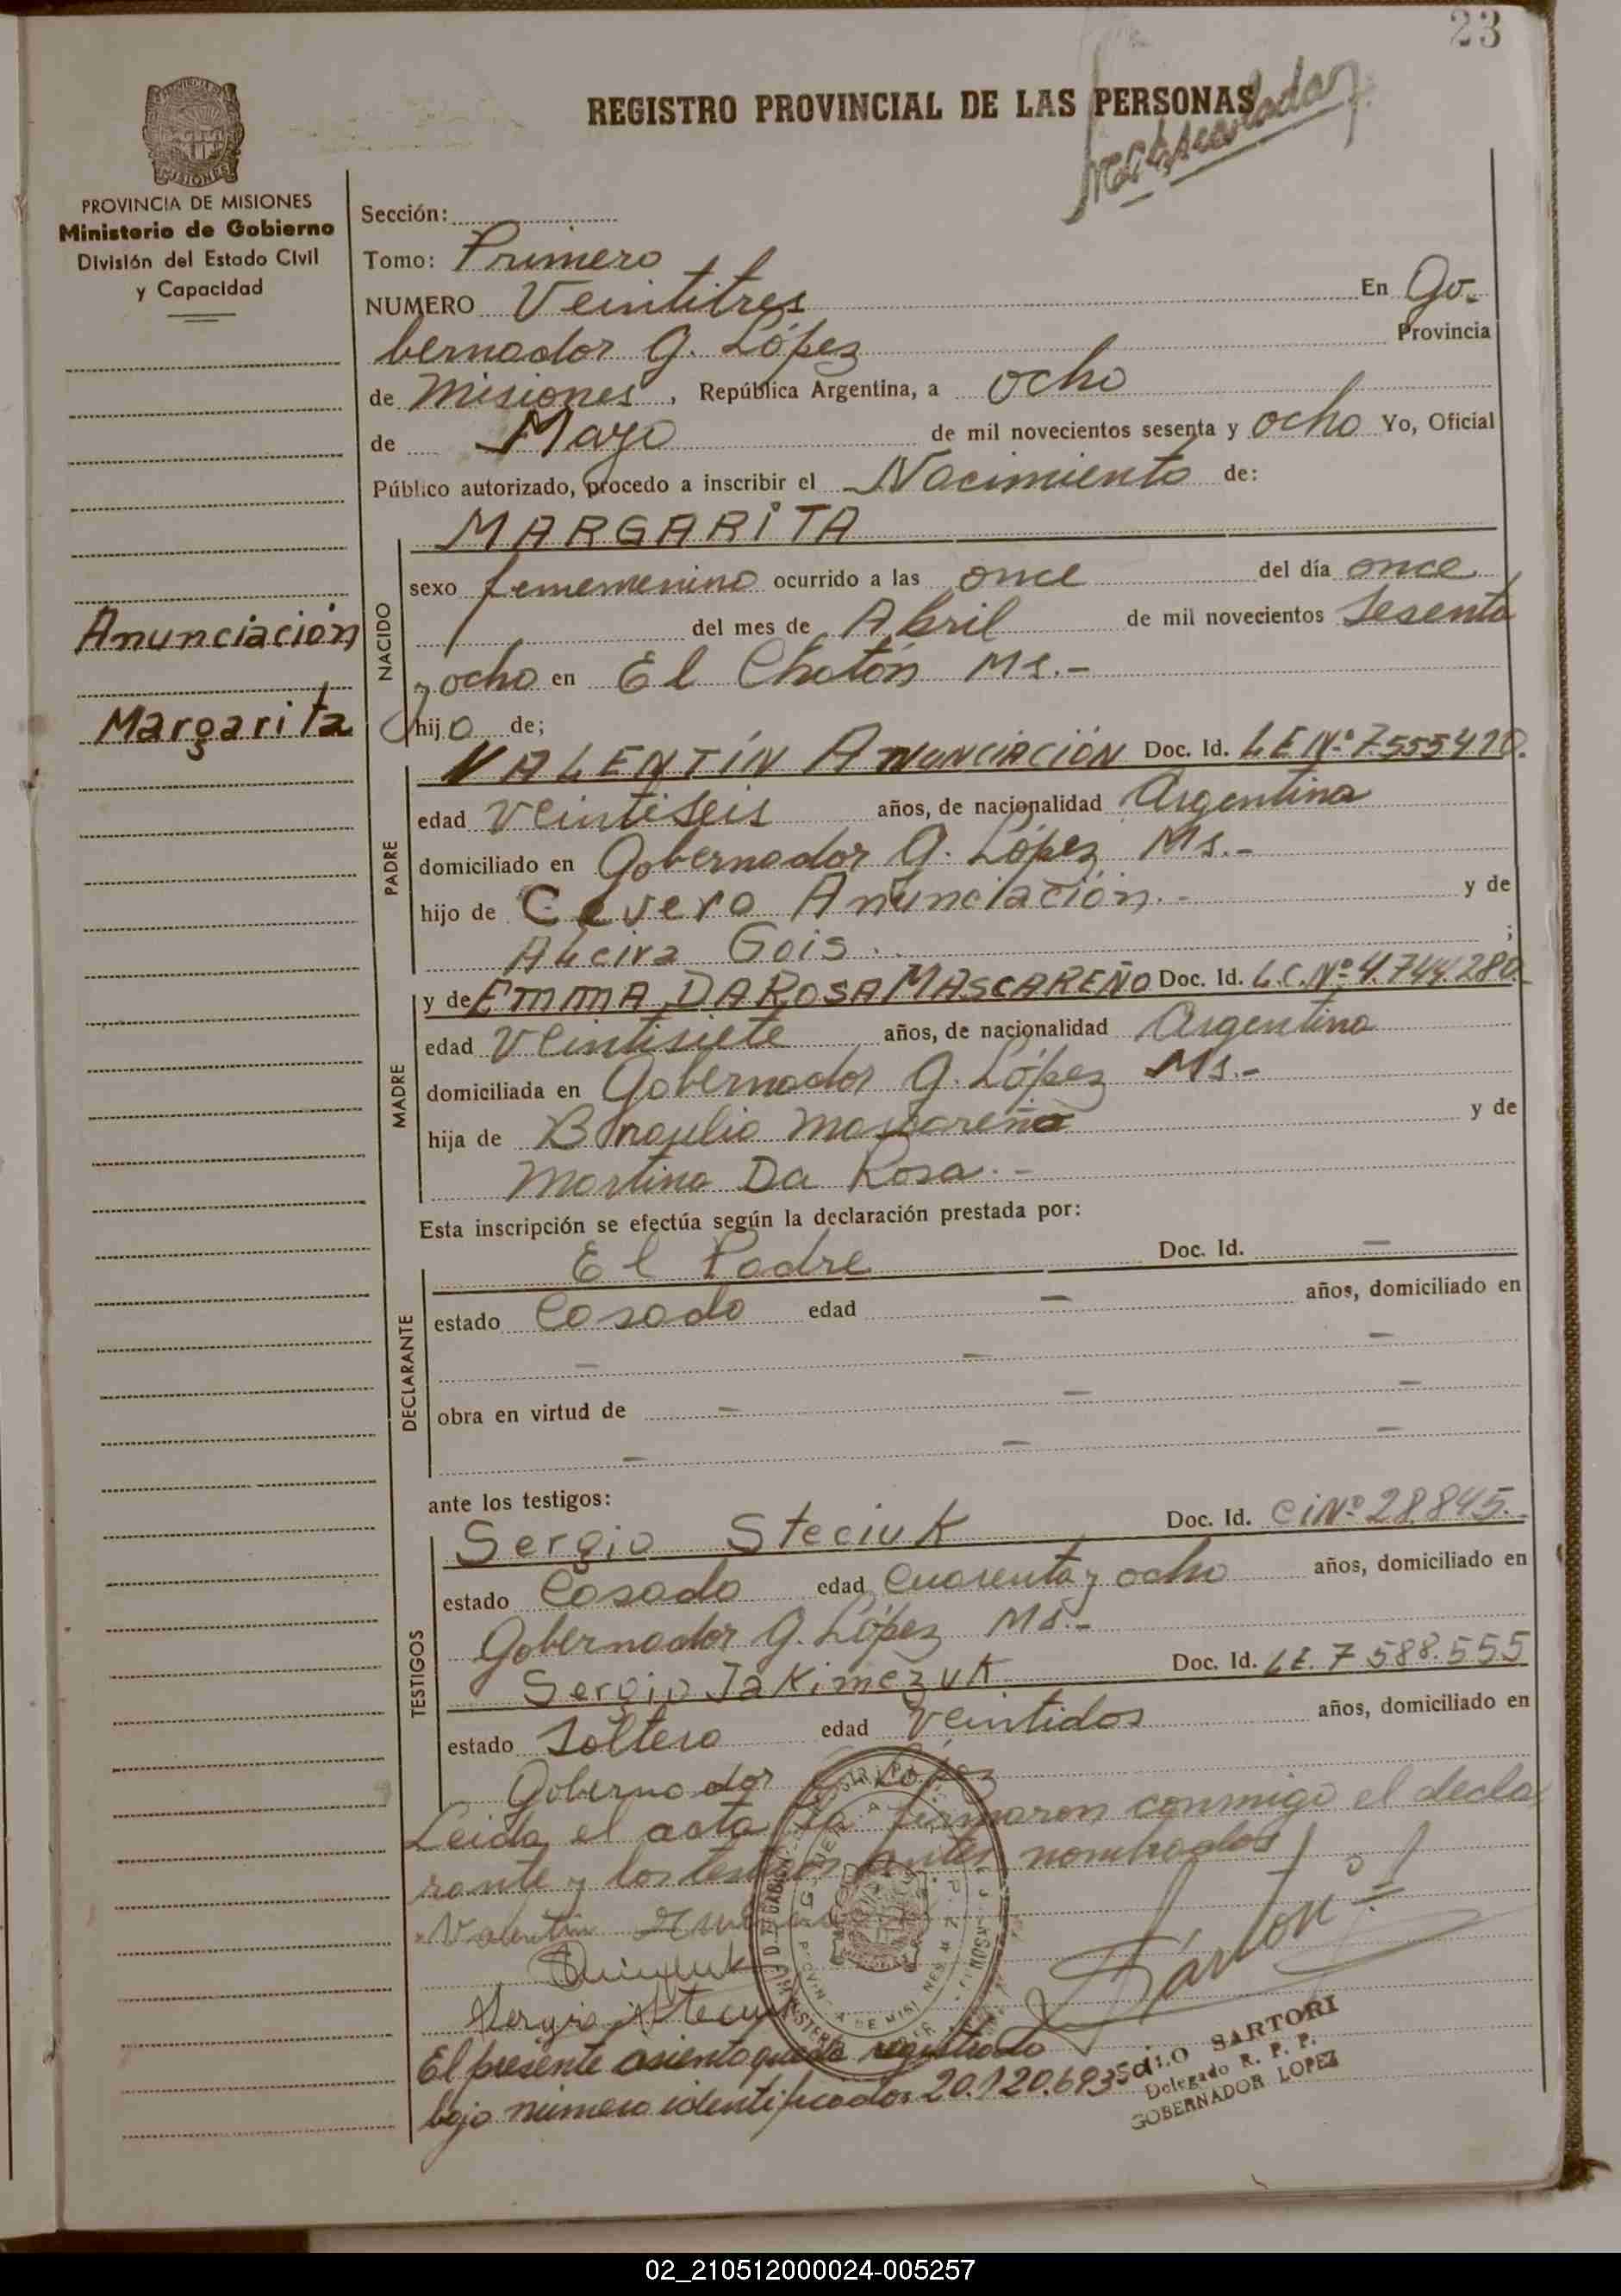 23
REGISTRO PROVINCIAL DE LAS PERSONAS
MISIONES
PROVINCIA DE MISIONES
Ministerio de Gobierno
División del Estado Civil
y Capacidad
Anunciación
Margarita
Sección:
Tomo: Primero
NUMERO Veintitres En Go-
bernador G. López Provincia
de Misiones, República Argentina, a ocho
de Mayo de mil novecientos sesenta y ocho Yo, Oficial
Público autorizado, procedo a inscribir el Nacimiento de:
MARGARITA
NACIDO
sexo fememenino ocurrido a las once del día once
del mes de Abril de mil novecientos sesenta
y ocho en El Chatón Ms.-
hija de;
PADRE
VALENTÍN ANUNCIACIÓN Doc. Id. L.E Nº 7555410.
edad veintiseis años, de nacionalidad Argentina
domiciliado en Gobernador G. López Ms.-
hijo de Cevero Anunciación.- y de
Gois.
;
MADRE
y de EMMA DA ROSA MASCAREÑO Doc. Id. L.C. Nº 4.744.280.
edad veintisiete años, de nacionalidad Argentina
domiciliada en Gobernador G. López Ms.-
hija de Mascareño y de
Martina Da Rosa.-
Esta inscripción se efectúa según la declaración prestada por:
DECLARANTE
El Padre Doc. Id. —
estado Casado edad — años, domiciliado en
— — —
obra en virtud de — — —
— — —
ante los testigos:
TESTIGOS
Sergio Steciuk Doc. Id. CiNº 28.845.-
estado Casado edad cuarenta y ocho años, domiciliado en
Gobernador G. López Ms.-
Sergio Jakimczuk Doc. Id. L.E. 7.588.555
estado Soltero edad veintidos años, domiciliado en
Gobernador G. López
Leida el acta la firmaron conmigo el decla
rante y los testigos antes nombrados
Valentin
Sergio Steciuk
Sártori
El presente asiento queda registrado
bajo número identificador 20.120.693
SARTORI
Delegado R. P. P.
GOBERNADOR LOPEZ
02_210512000024-005257